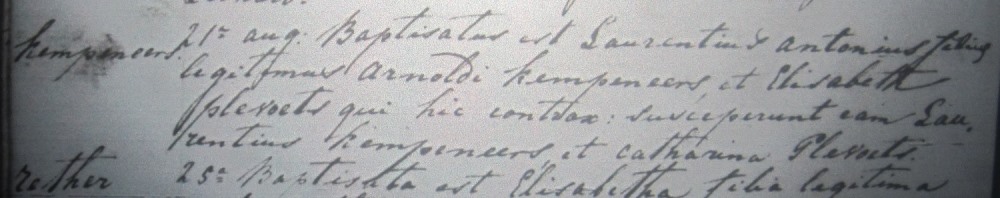 kempeneers. 21ª aug: Baptisatus est Laurentius antonius filius
legitimus Arnoldi kempeneers, et Elisabeth
plevoets qui hic contrax: susceperunt eam Lau,
rentius kempeneers, et catharina Plevoets.
rether 25ª Baptisata est Elisabetha filia legitima